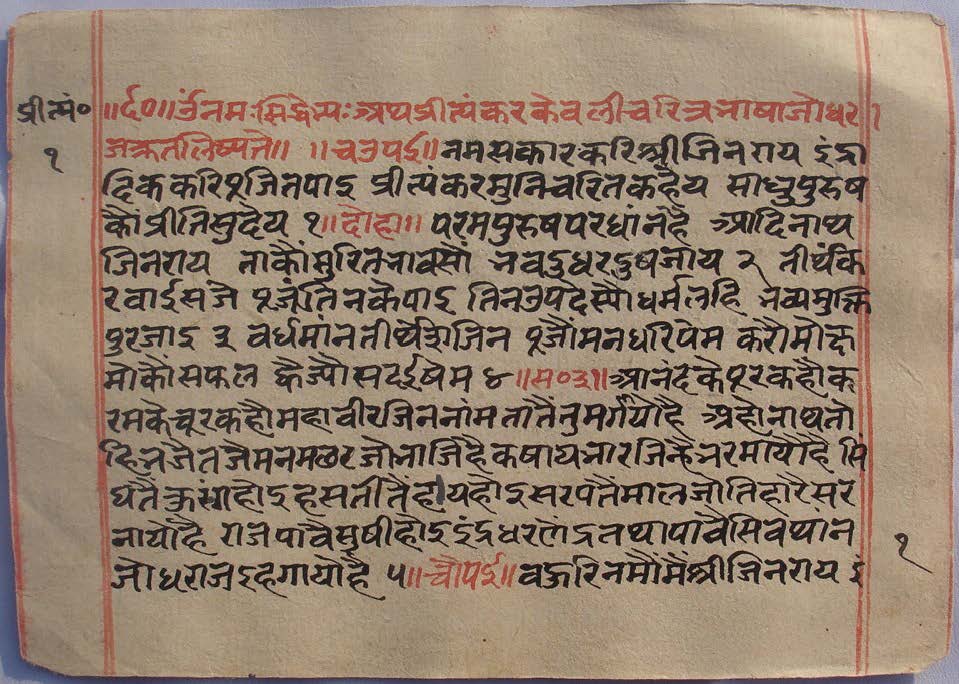 प्रीत्यं०
१
॥र्द०॥ र्उंनमःसिद्धेभ्यःअथप्रीत्यंकरकेवलीचरित्रभाषाजोधरा
जकृतलिष्यते॥ ॥चउपई॥नमसकारकरिश्रीजिनराय इंद्रा
दिककरिपूजितपाइ प्रीत्यंकरमुनिचरितकहेय साधुपुरुष
कौंप्रीतिसुदेय १॥दोहा॥ परमपुरुषपरधांनहै आदिनाथ
जिनराय ताकौंसुरितभावसौं भवदुधरदुषजाय २ तीर्थंक
रवाईसजे पूजंतिनकेपाइ तिनउपदेस्यौधर्मलहि भव्यमुक्ति
पुरजाइ ३ वर्धमांनतीर्थेशजिन पूजौंमनधरिपेम करौमोक्ष
मोकौंसफल ह्वैज्यौसदईषेम ४॥स०३१॥आनंदकेपूरकहौक
रमकेचूरकहौमहावीरजिननांमतातैंतुमगायौहै अहोनाथतो
हिभजैतजैमनमछरजोभाजिहैकषायभारजिन्हैभरमायौहै सिं
घतैंकुसाहोइहसतीतैंहायहोइसरपतैंमालजोतिहारैसर
नायौहै राजपावैसुषीहोइइंद्रधरलोइतथापावैसिवथांन
जोधराजइहगायौहै ५॥चौपई॥वहुरिनमौंमैंश्रीजिनराय इं
१